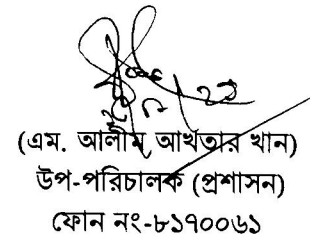 (এম. আলাম আখতার খান)
উপ-পরিচালক (প্রশাসন)
ফোন নং-৮১৭০০৬১